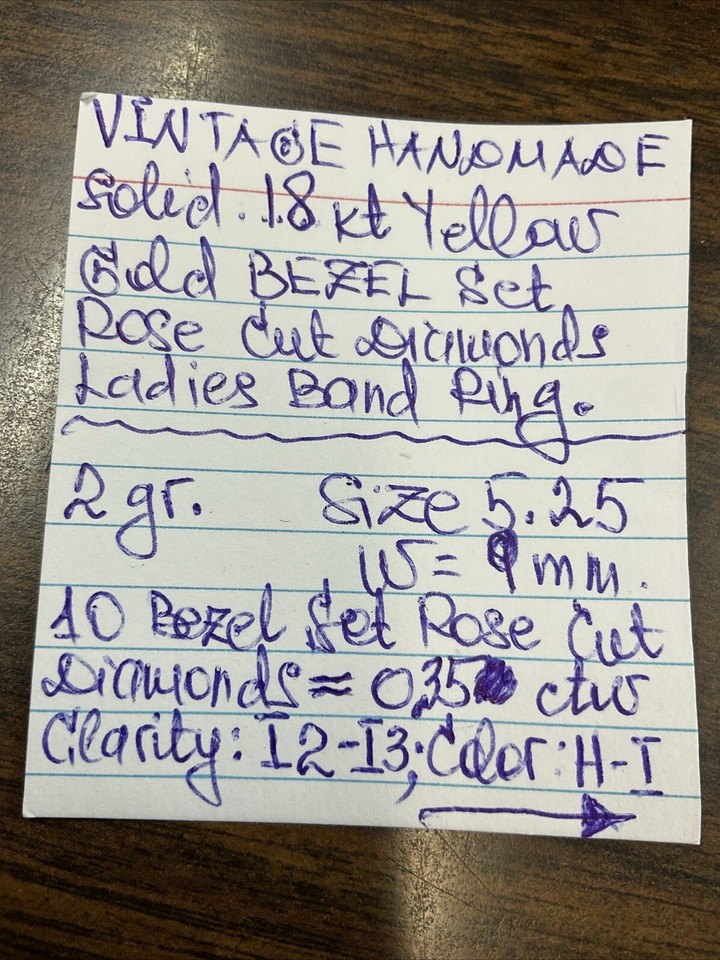 VINTAGE HANDMADE
Solid 18 kt Yellow
Gold BEZEL Set
Rose Cut Diamonds
Ladies Band Ring.
2 gr. Size 5.25
W = 9 mm.
10 Bezel Set Rose Cut
Diamonds ≈ 0,35 ctw
Clarity: I2-I3; Color: H-I